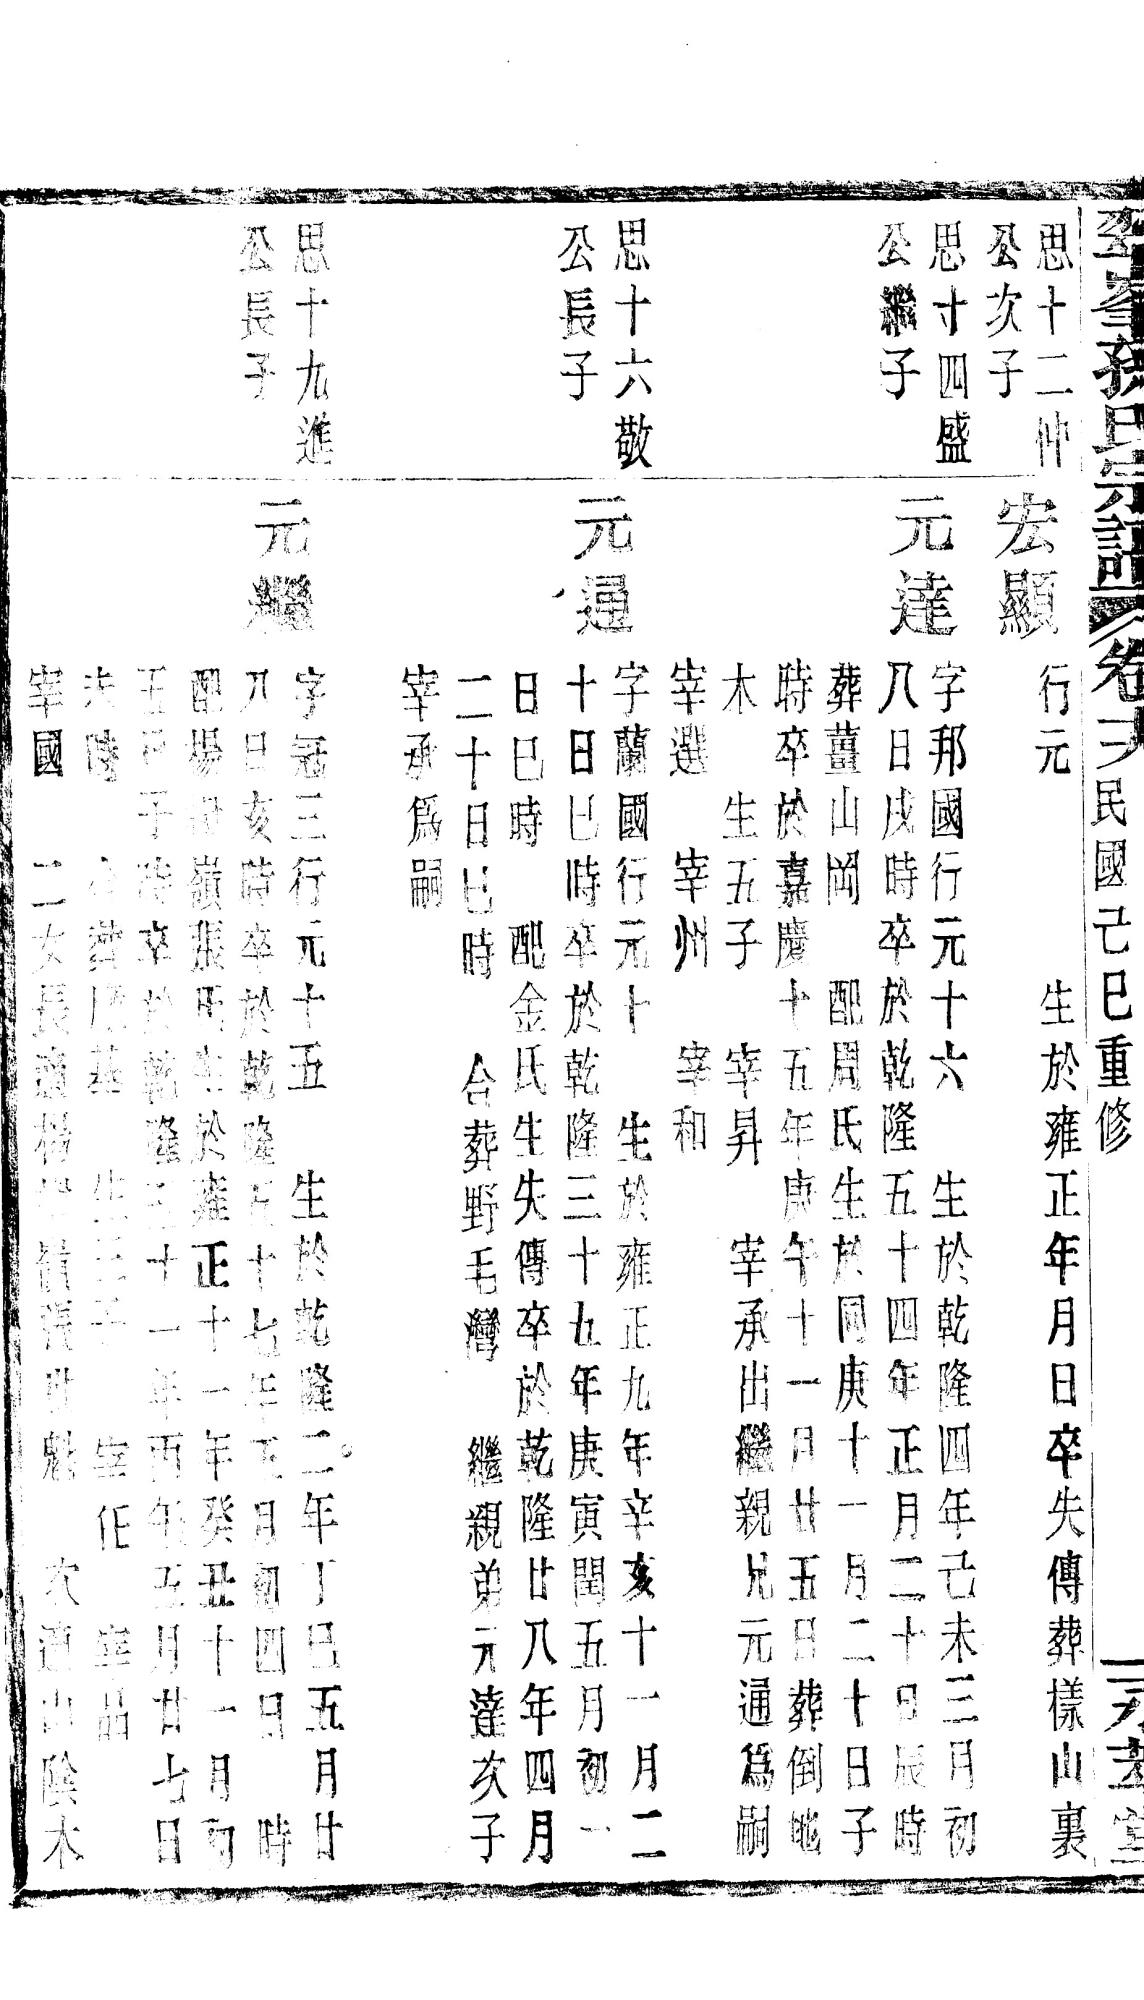 孫氏宗譜 卷 民國己巳重修
思十二仲
公次子
宏顯
行元 生於雍正年月日卒失傳葬樣山裏
思十四盛
公繼子
元達
字邦國行元十六 生於乾隆四年己未三月初
八日戌時卒於乾隆五十四年正月二十日辰時
葬薑山岡 配周氏生於同庚十一月二十日子
時卒於嘉慶十五年庚午十一月廿五日葬倒地
木 生五子 宰昇 宰承出繼親兄元通爲嗣
宰選 宰州 宰和
思十六敬
公長子
元通
字蘭國行元十 生於雍正九年辛亥十一月二
十日巳時卒於乾隆三十九年庚寅閏五月初一
日巳時 配金氏生失傳卒於乾隆廿八年四月
二十日巳時 合葬野毛灣 繼親弟元達次子
宰承爲嗣
思十九進
公長子
元繼
字冠三行元十五 生於乾隆二年丁巳五月廿
八日亥時卒於乾隆五十七年五月初四日 時
配楊 嶺張氏生於雍正十一年癸丑十一月初
五日子時卒於乾隆五十一年丙午五月廿七日
未時 合葬 基 生三子 宰任 宰品
宰國 二女長適楊 嶺張世魁 次適山陰木